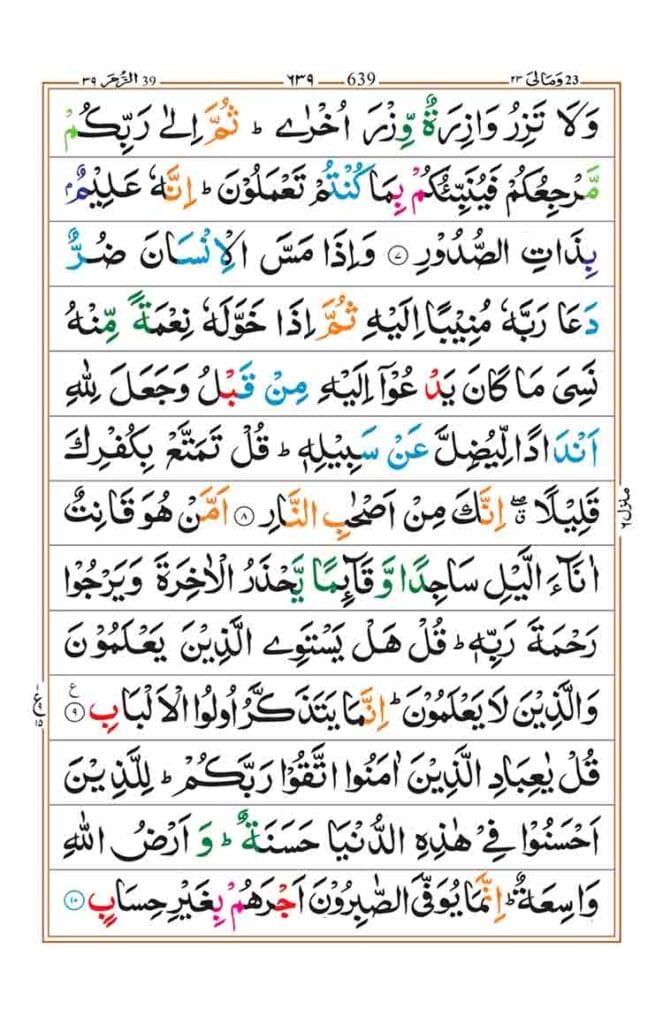 وَمَالِىَ ٢٣ 23 639 ٦٣٩ الزُّمَر ٣٩ 39
وَلَا تَزِرُ وَازِرَةٌ وِّزْرَ اُخْرٰى ؕ ثُمَّ اِلٰى رَبِّكُمْ
مَّرْجِعُكُمْ فَيُنَبِّئُكُمْ بِمَا كُنْتُمْ تَعْمَلُوْنَ ؕ اِنَّهٗ عَلِيْمٌۢ
بِذَاتِ الصُّدُوْرِ ﴿۷﴾ وَاِذَا مَسَّ الْاِنْسَانَ ضُرٌّ
دَعَا رَبَّهٗ مُنِيْبًا اِلَيْهِ ثُمَّ اِذَا خَوَّلَهٗ نِعْمَةً مِّنْهُ
نَسِىَ مَا كَانَ يَدْعُوْۤا اِلَيْهِ مِنْ قَبْلُ وَجَعَلَ لِلّٰهِ
اَنْدَادًا لِّيُضِلَّ عَنْ سَبِيْلِهٖ ؕ قُلْ تَمَتَّعْ بِكُفْرِكَ
قَلِيْلًا ۖ ۗ اِنَّكَ مِنْ اَصْحٰبِ النَّارِ ﴿۸﴾ اَمَّنْ هُوَ قَانِتٌ
منزل ٦
اٰنَآءَ الَّيْلِ سَاجِدًا وَّقَآئِمًا يَّحْذَرُ الْاٰخِرَةَ وَيَرْجُوْا
رَحْمَةَ رَبِّهٖ ؕ قُلْ هَلْ يَسْتَوِى الَّذِيْنَ يَعْلَمُوْنَ
وَالَّذِيْنَ لَا يَعْلَمُوْنَ ؕ اِنَّمَا يَتَذَكَّرُ اُولُوا الْاَلْبَابِ ﴿۹﴾ ع
قُلْ يٰعِبَادِ الَّذِيْنَ اٰمَنُوا اتَّقُوْا رَبَّكُمْ ؕ لِلَّذِيْنَ
اَحْسَنُوْا فِىْ هٰذِهِ الدُّنْيَا حَسَنَةٌ ؕ وَاَرْضُ اللّٰهِ
وَاسِعَةٌ ؕ اِنَّمَا يُوَفَّى الصّٰبِرُوْنَ اَجْرَهُمْ بِغَيْرِ حِسَابٍ ﴿۱۰﴾